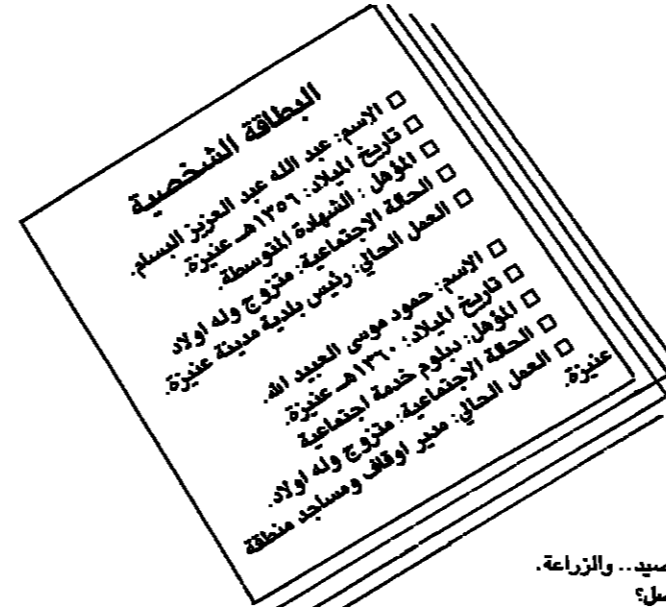 البطاقة الشخصية
□ الإسم: عبد الله عبد العزيز البسام.
□ تاريخ الميلاد: ١٣٥٦هـ عنيزة.
□ المؤهل: الشهادة المتوسطة.
□ الحالة الإجتماعية: متزوج وله اولاد
□ العمل الحالي: رئيس بلدية مدينة عنيزة.
□ الإسم: حمود موسى العبيد الله.
□ تاريخ الميلاد: ١٣٦٠هـ عنيزة.
□ المؤهل: دبلوم خدمة اجتماعية
□ الحالة الإجتماعية: متزوج وله اولاد.
□ العمل الحالي: مدير اوقاف ومساجد منطقة
عنيزة.
صيد.. والزراعة.